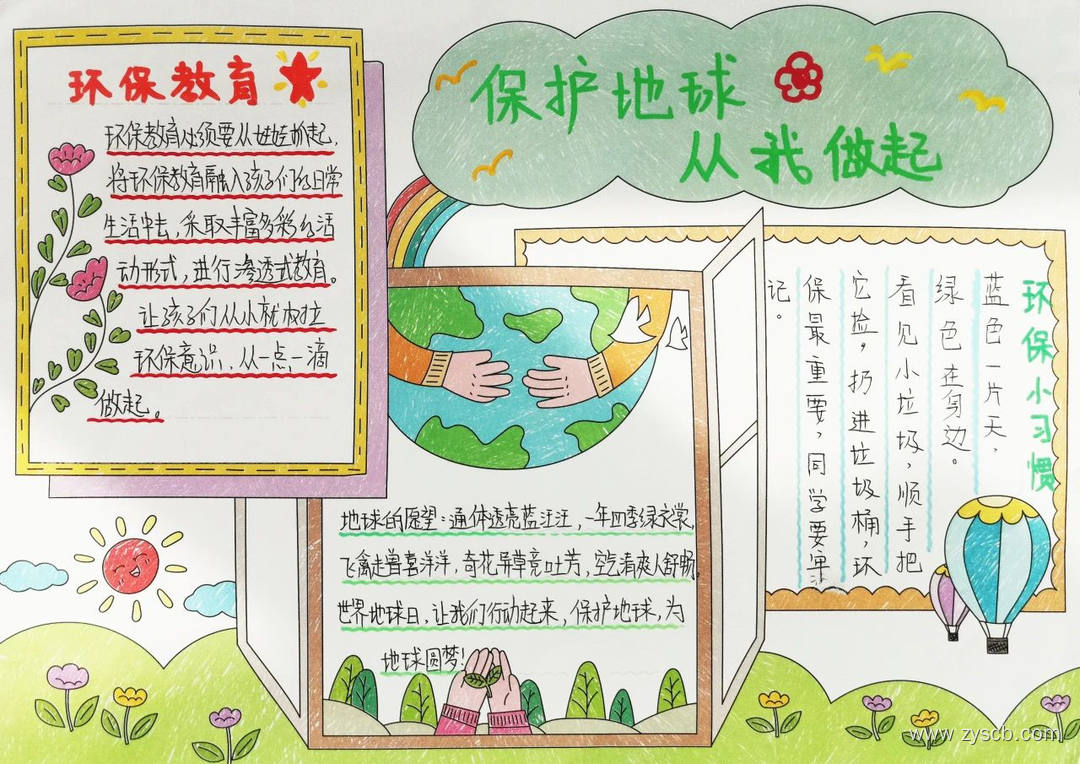 保护地球
从我做起
环保教育
环保教育必须要从娃娃抓起，
将环保教育融入孩子们的日常
生活中去，采取丰富多彩的活
动形式，进行渗透式教育。
让孩子们从小就树立
环保意识，从一点一滴
做起。
地球的愿望：通体透亮蓝汪汪，一年四季绿衣裳，
飞禽走兽喜洋洋，奇花异草竞吐芳，空气清爽人舒畅。
世界地球日，让我们行动起来，保护地球，为
地球圆梦！
环保小习惯
蓝色一片天，
绿色在身边。
看见小垃圾，顺手把
它捡，扔进垃圾桶，环
保最重要，同学要牢
记。
www.zyscb.com